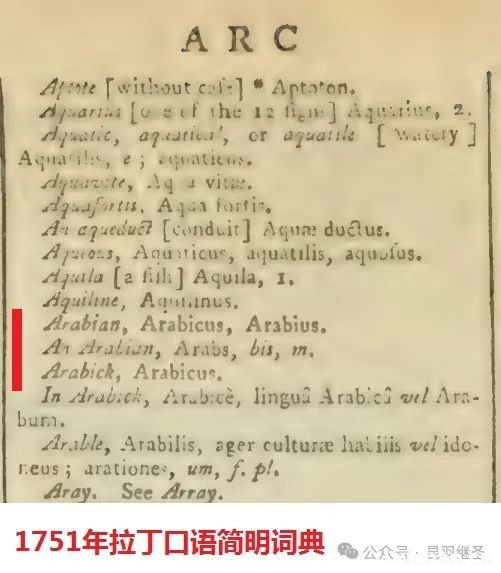 ARC
Aptote [without case] * Aptoton.
Aquarius [one of the 12 signs] Aquarius, 2.
Aquatic, aquatical, or aquatile [Watery]
Aquatilis, e; aquaticus.
Aquavite, Aqua vitæ.
Aquafortis, Aqua fortis.
An aqueduct [conduit] Aquæ ductus.
Aqueous, Aquaticus, aquatilis, aquosus.
Aquila [a fish] Aquila, 1.
Aquiline, Aquilinus.
Arabian, Arabicus, Arabius.
An Arabian, Arabs, bis, m.
Arabick, Arabicus.
In Arabick, Arabicè, linguâ Arabicâ vel Ara-
bum.
Arable, Arabilis, ager culturæ habilis vel ido-
neus; arationes, um, f. pl.
Aray. See Array.
1751年拉丁口语简明词典
公众号·昆羽继圣